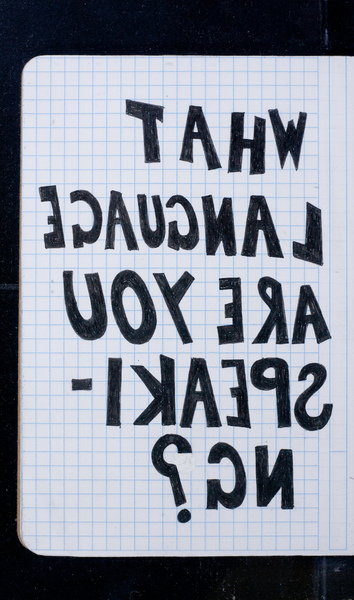 WHAT
LANGUAGE
ARE YOU
SPEAKI-
NG?